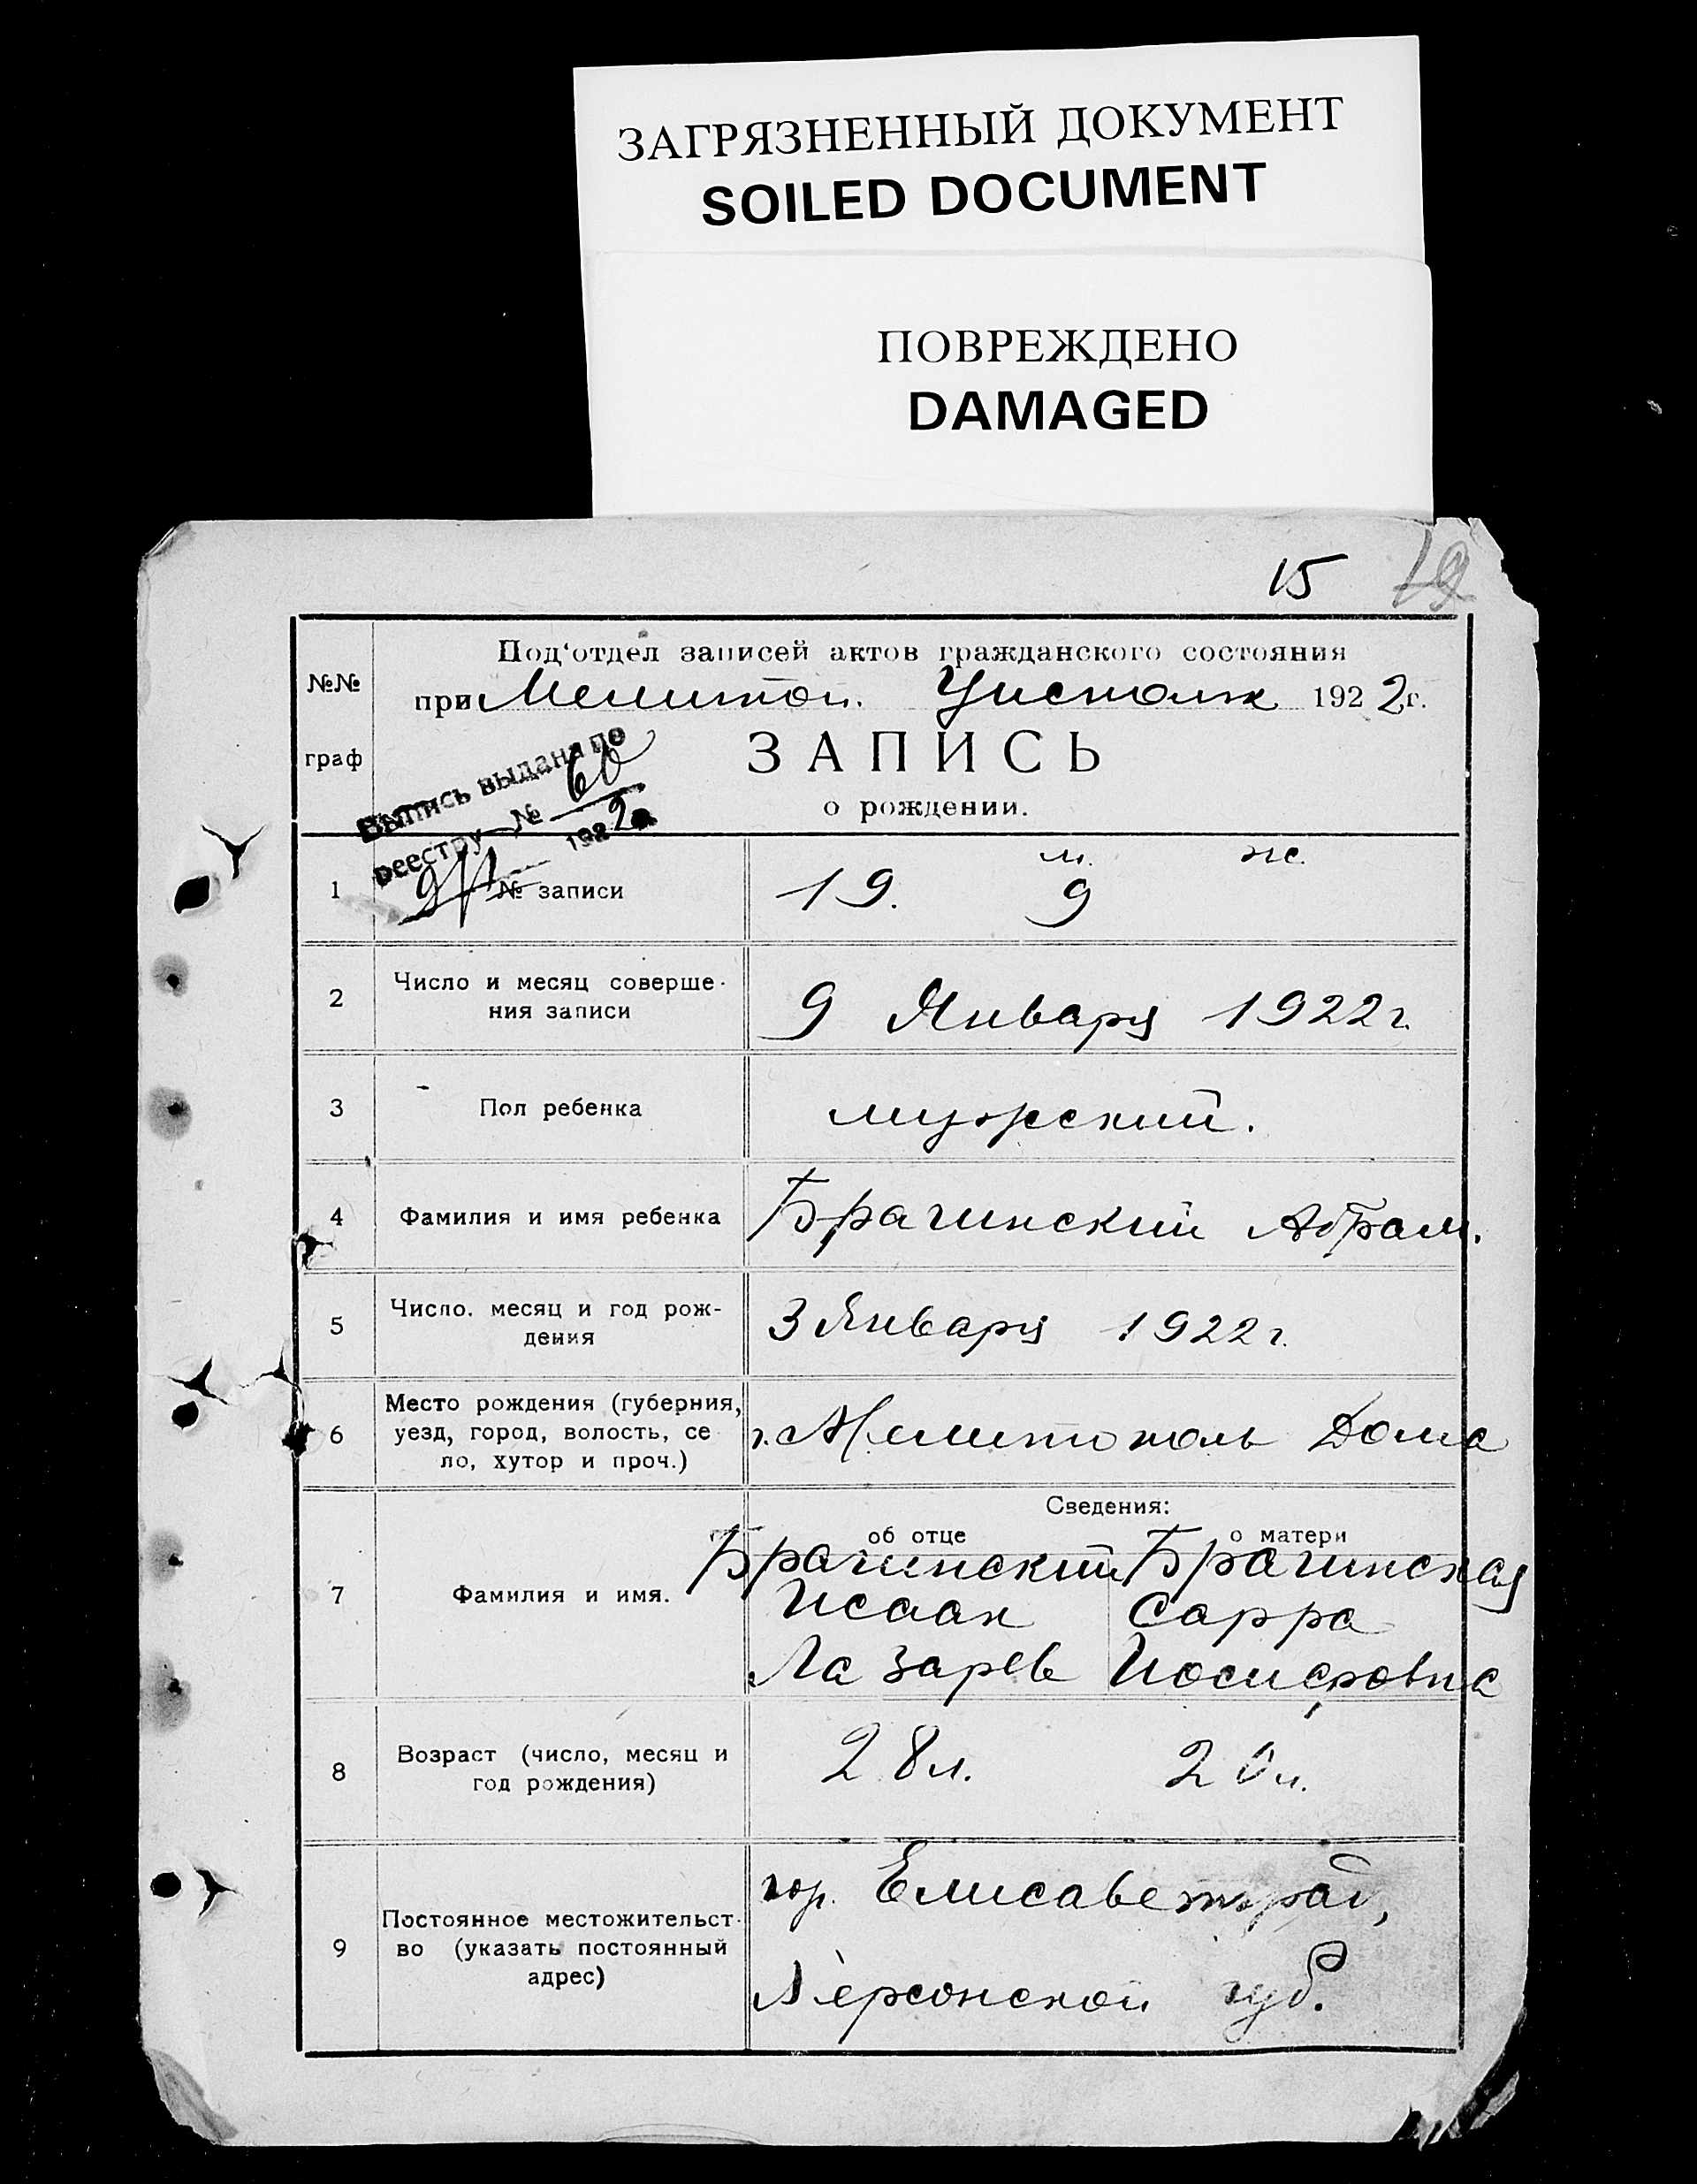 ЗАГРЯЗНЕННЫЙ ДОКУМЕНТ
SOILED DOCUMENT
ПОВРЕЖДЕНО
DAMAGED
15 19
№№ граф
Под‘отдел записей актов гражданского состояния
при Мелитоп. 1922 г.
ЗАПИСЬ
о рождении.
Выпись выдана по
реестру № 60
1922
1 № записи 19. м. 9 ж.
2 Число и месяц соверше-
ния записи 9 Января 1922 г.
3 Пол ребенка мужеский.
4 Фамилия и имя ребенка Брагинский Абрам.
5 Число. месяц и год рож-
дения 3 Января 1922 г.
6 Место рождения (губерния,
уезд, город, волость, се
ло, хутор и проч.) г. Мелитополь Дома
Сведения:
об отце о матери
7 Фамилия и имя. Брагинский Брагинская
Исаак Сарра
Лазарев Иосифовна
8 Возраст (число, месяц и
год рождения) 28 л. 20 л.
9 Постоянное местожительст-
во (указать постоянный
адрес) гор. Елисаветград,
Херсонской губ.